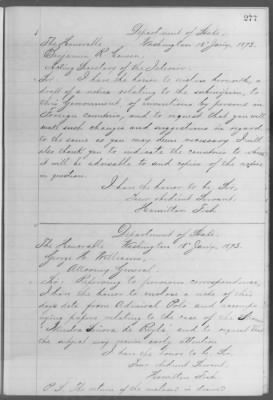 277
Department of State.
The Honorable Washington 15" Jan'y, 1873.
Benjamin R. Cowen,
Acting Secretary of the Interior.
Sir: I have the honor to enclose herewith, a
draft of a notice relating to the submission, to
this Government, of inventions by persons in
Foreign countries, and to request that you will
make such changes and suggestions in regard
to the same as you may deem necessary. I will
also thank you to indicate the countries to which
it will be advisable to send copies of the notice
in question.
I have the honor to be, Sir,
Your obedient Servant,
Hamilton Fish.
Department of State.
The Honorable Washington 15" Jan'y, 1873.
George H. Williams,
Attorney General.
Sir: Referring to previous correspondence,
I have the honor to enclose a note of this
day's date from Admiral Polo and accompa-
nying papers relating to the case of the
and to request that
the subject may receive early attention.
I have the honor to be, Sir,
Your obedient Servant,
Hamilton Fish.
P.S. The return of the enclosures is desired.